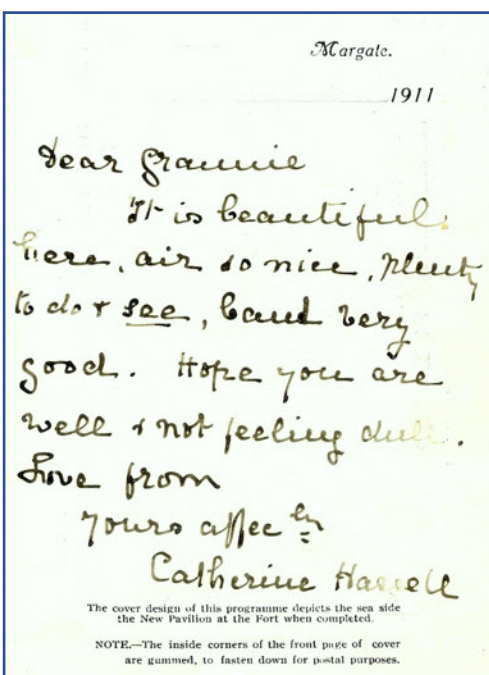 Margate.
1911
Dear Grannie
It is beautiful
here, air so nice, plenty
to do & see, band very
good. Hope you are
well & not feeling dull.
Love from
yours affec ly
Catherine
The cover design of this programme depicts the sea side
the New Pavilion at the Fort when completed.
NOTE.—The inside corners of the front page of cover
are gummed, to fasten down for postal purposes.